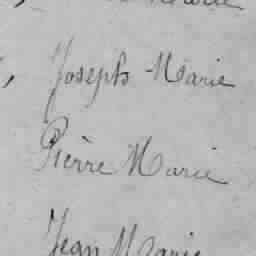 Joseph Marie
Pierre Marie
Jean Marie